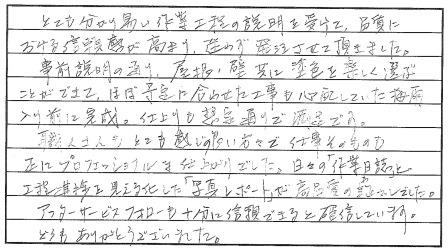 とても分かり易い作業工程の説明を受けて、品質に
おける信頼感が高まり、迷わず発注させて頂きました。
事前説明の通り、屋根・壁共に塗色を楽しく選ぶ
ことができて、ほぼ予定に合わせた工事も心配していた梅雨
入り前に完成。仕上りも想定通りで満足です。
職人さんもとても感じの良い方々で仕事そのものも
正にプロフェッショナルな仕上がりでした。日々の「作業日誌」と
工程進捗を見える化した「写真レポート」が高品質の証でした。
アフターサービスフォローも十分に信頼できると確信しています。
どうもありがとうございました。